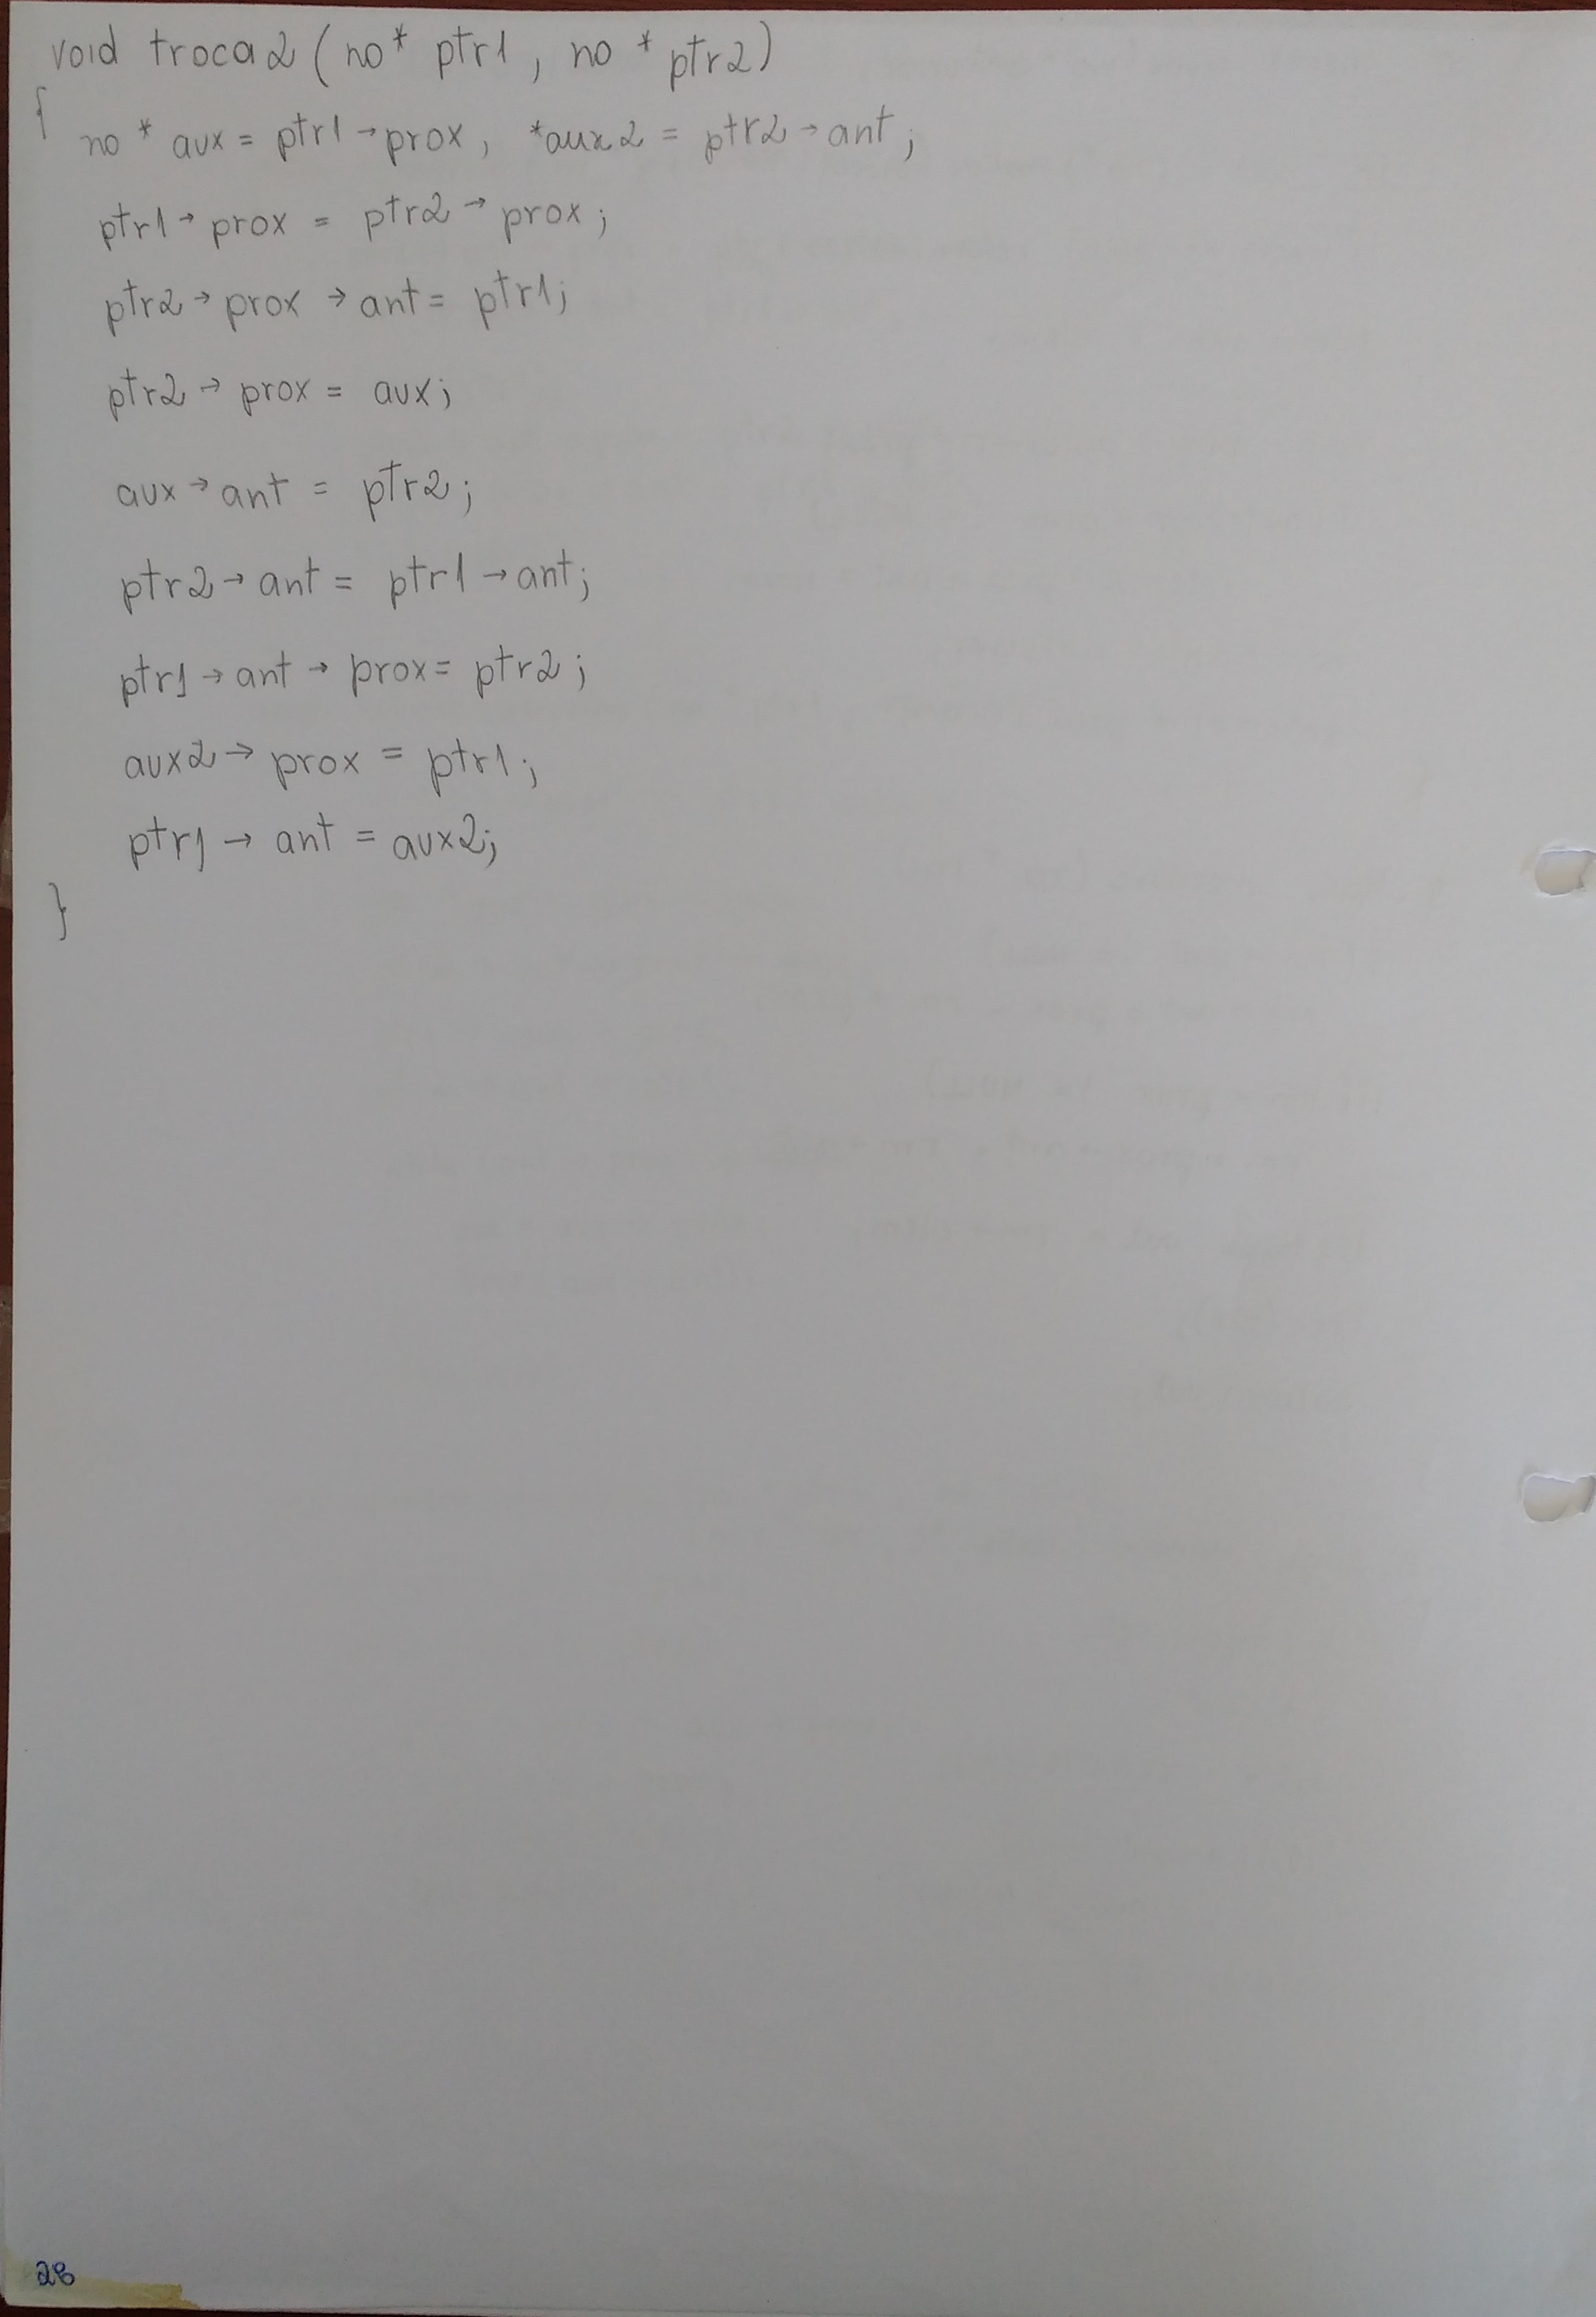 void troca2 (no* ptr1, no * ptr2)
{
no * aux = ptr1→prox, *aux2 = ptr2→ant;
ptr1→prox = ptr2→prox;
ptr2→prox→ant = ptr1;
ptr2→prox = aux;
aux→ant = ptr2;
ptr2→ant = ptr1→ant;
ptr1→ant→prox = ptr2;
aux2→prox = ptr1;
ptr1→ant = aux2;
}
28